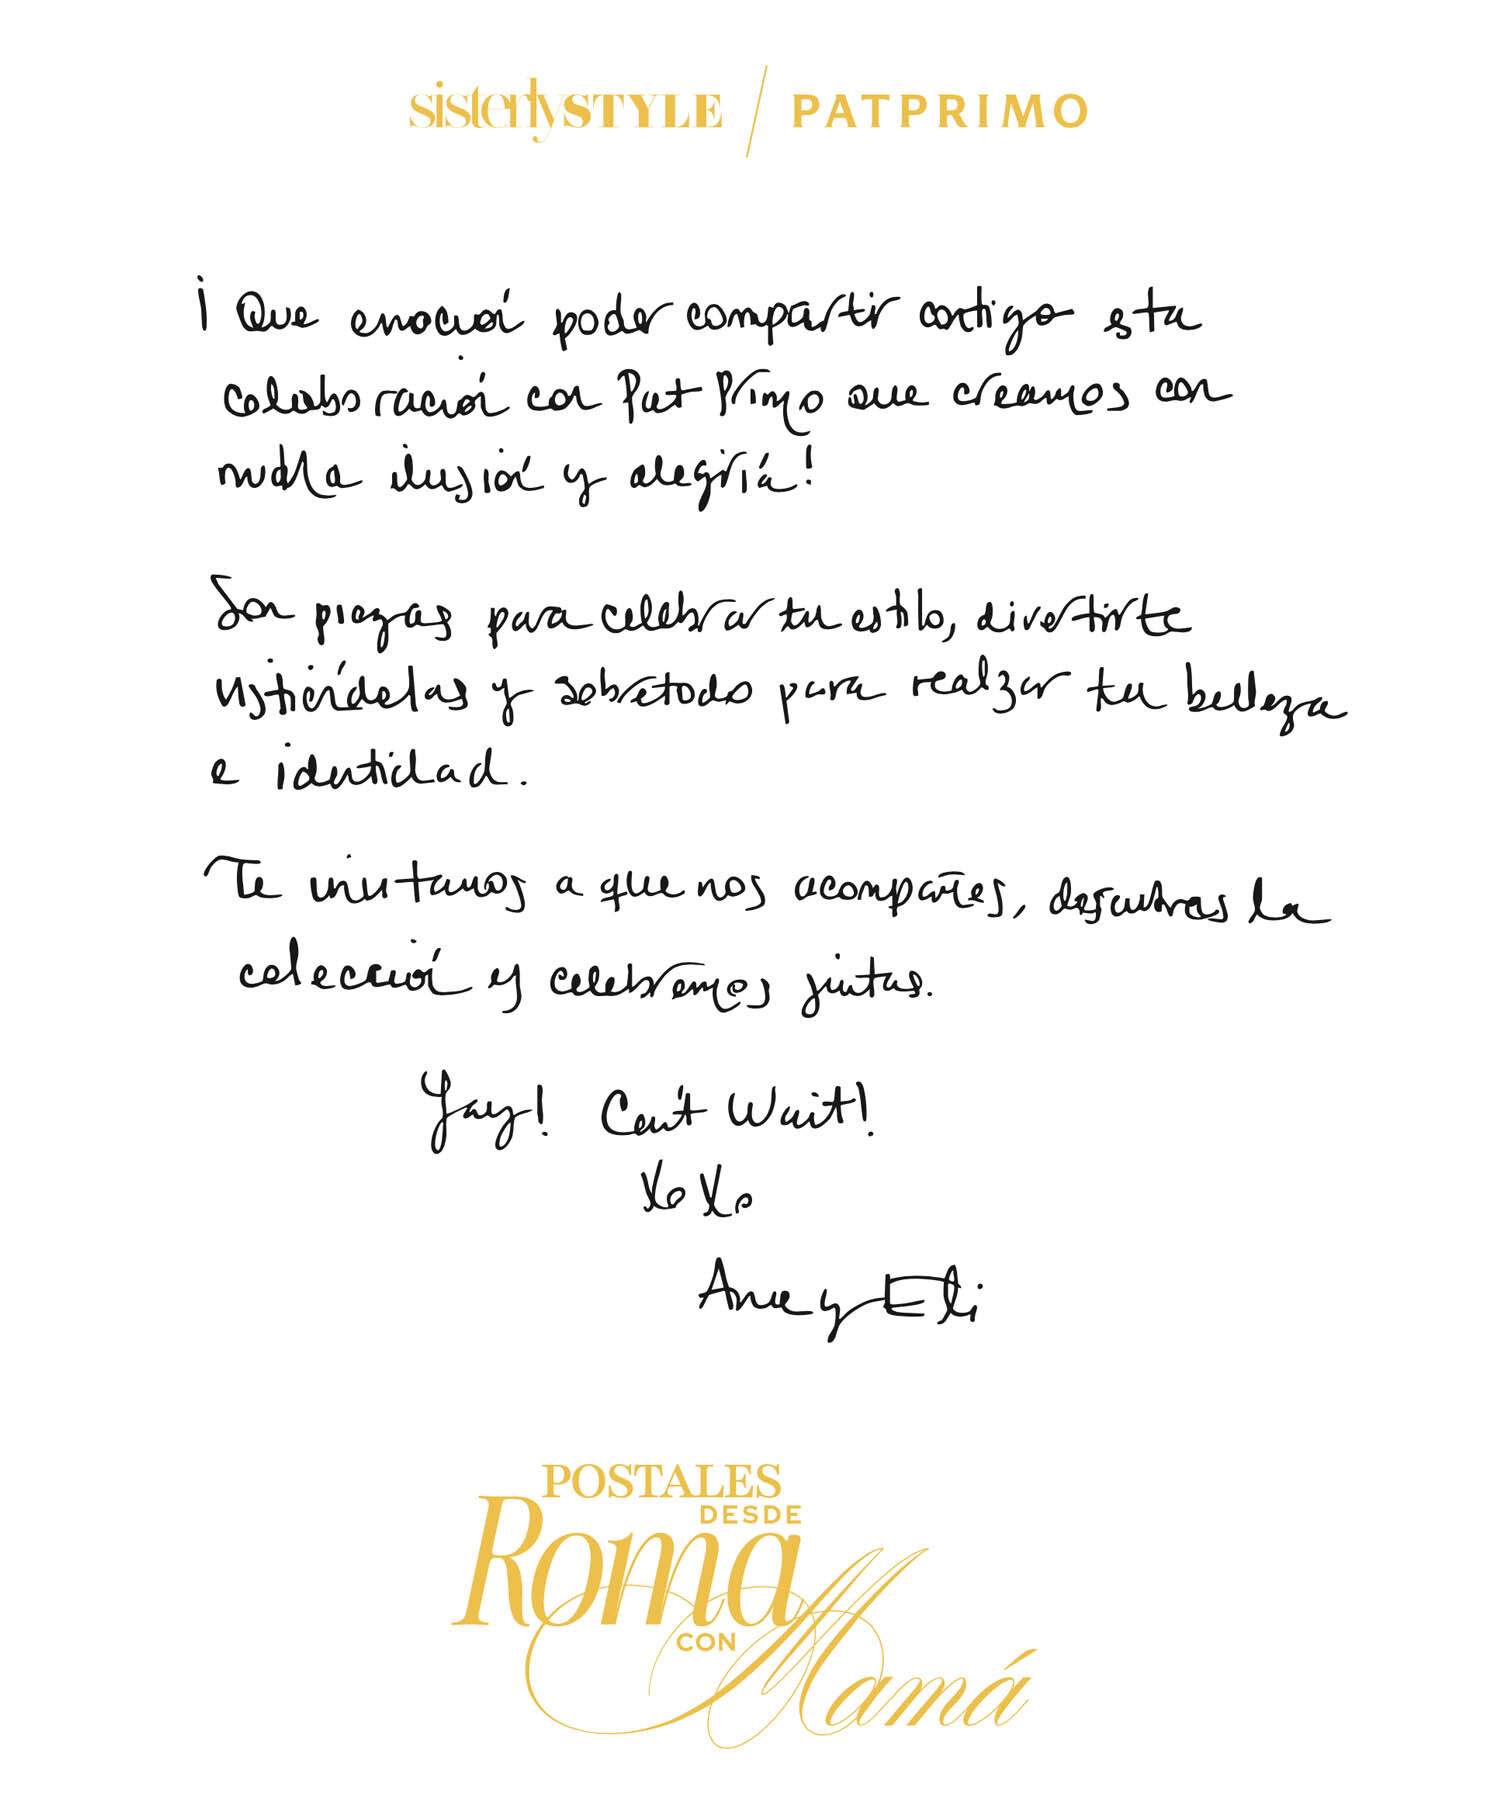 sisterlySTYLE / PATPRIMO
¡Que emoción poder compartir contigo esta
colaboración con Pat Primo que creamos con
mucha ilusión y alegría!
Son piezas para celebrar tu estilo, divertirte
vistiéndolas y sobretodo para realzar tu belleza
e identidad.
Te invitamos a que nos acompañes, descubras la
colección y celebremos juntas.
Yay! Can't Wait!
XoXo
Ana y Eli
POSTALES
DESDE
Roma
CON
Mamá